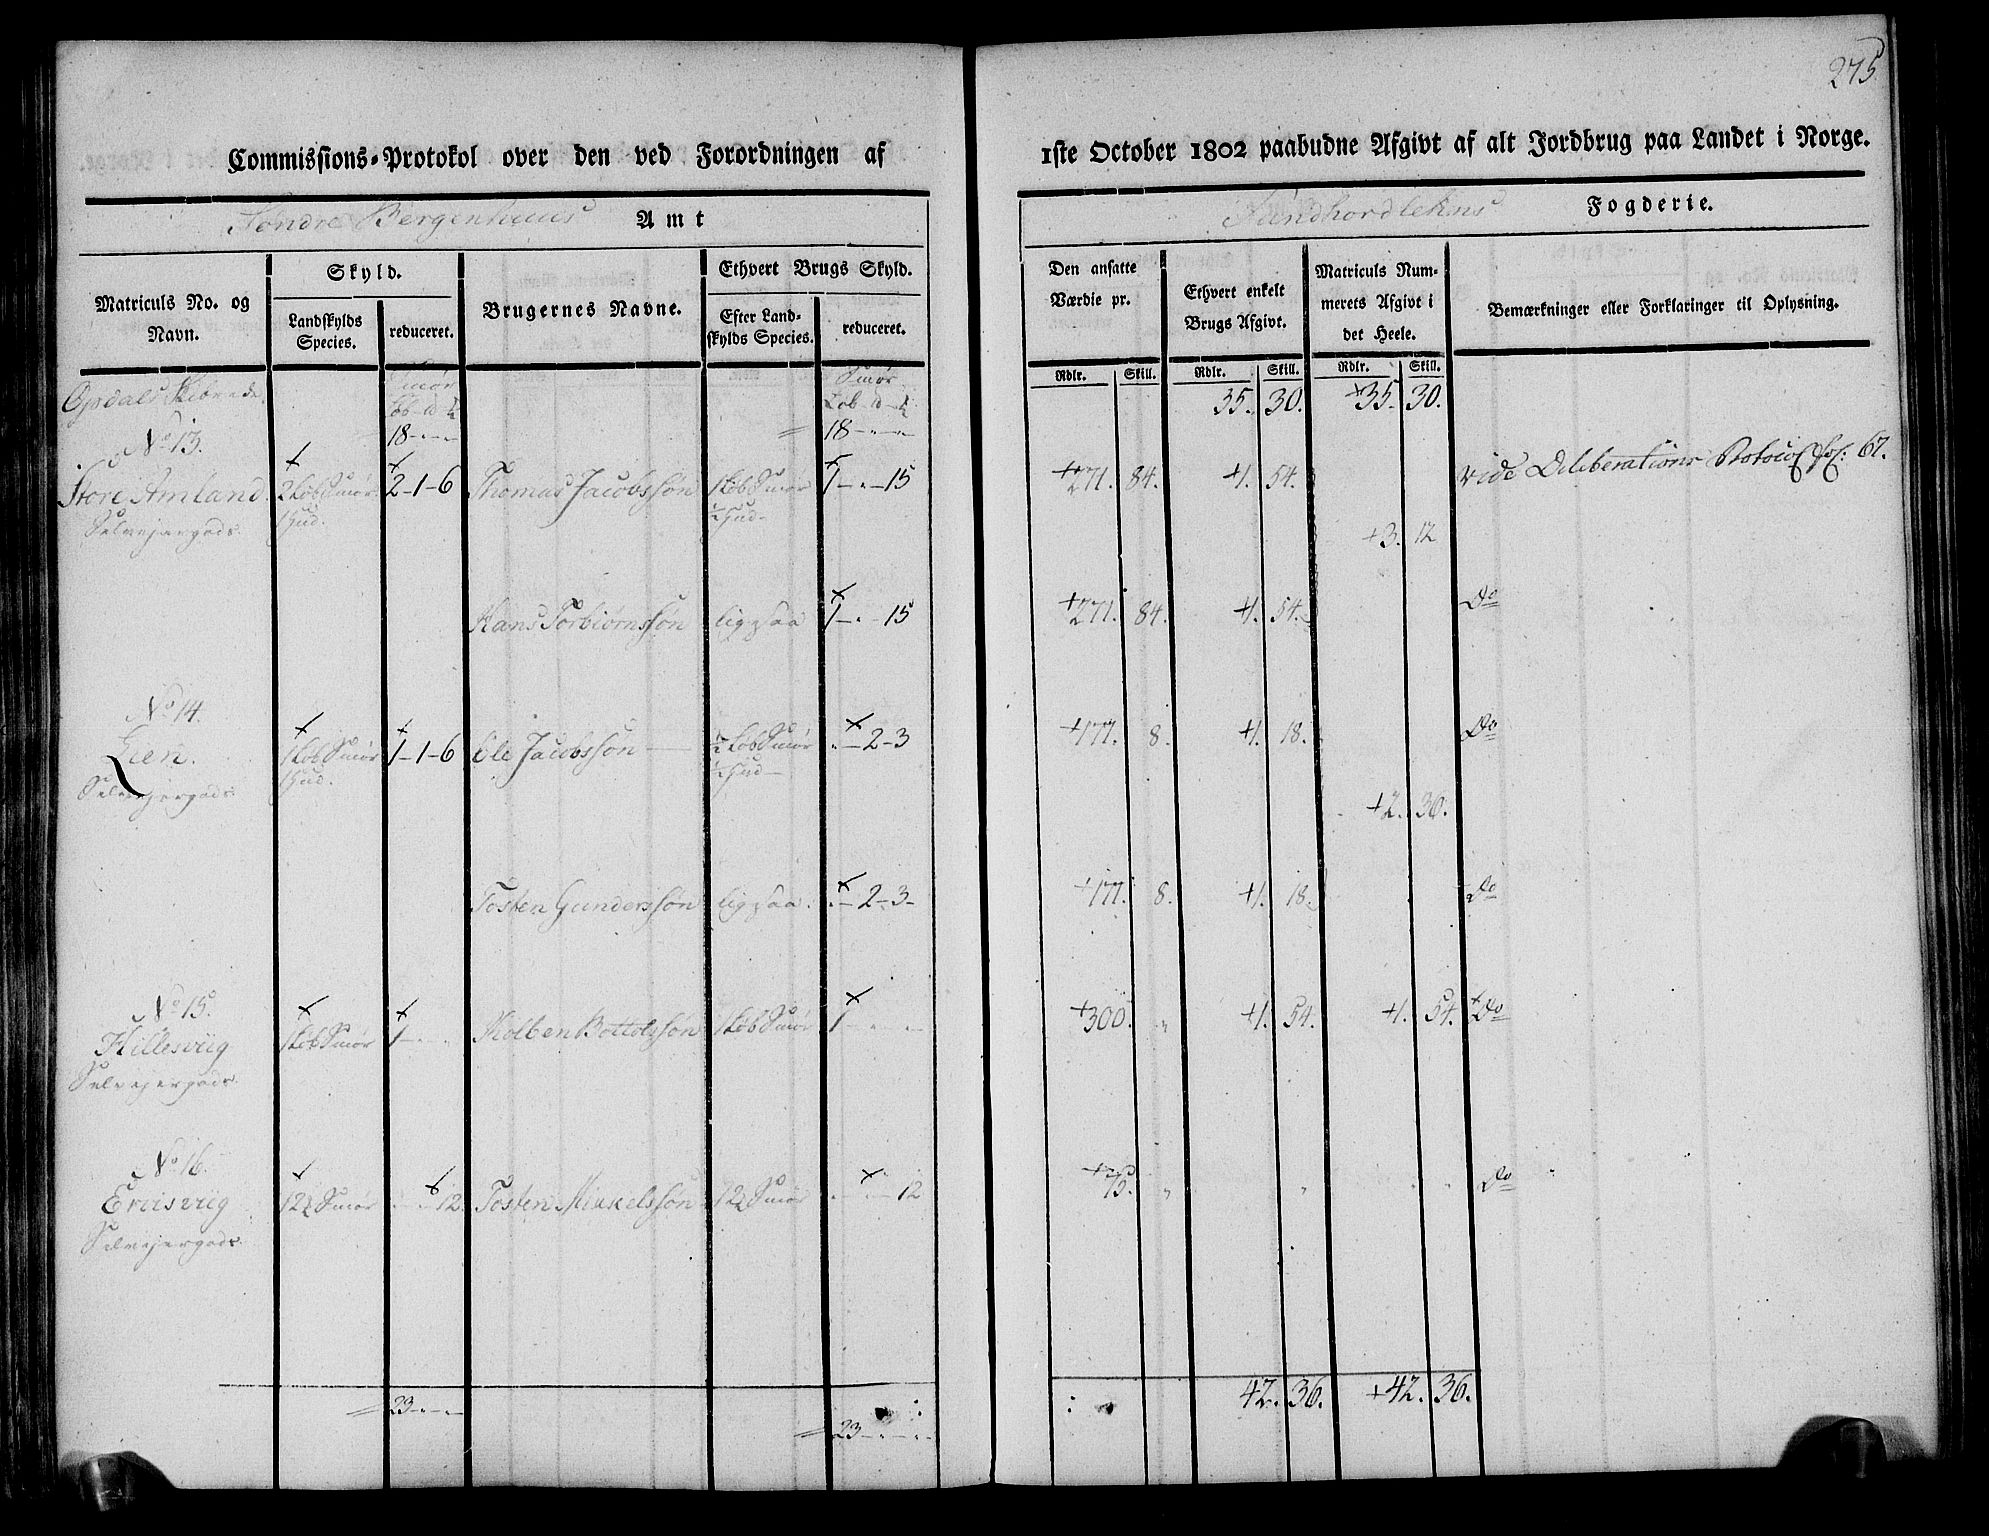 275
Commissions-Protokol over den ved Forordningen af 1ste October 1802 paabudne Afgivt af alt Jordbrug paa Landet i Norge.
Söndre Bergenhuus Amt
Sundhordlehns Fogderie.
Matriculs No. og Navn.
Skyld.
Landskylds Species.
reduceret.
Brugernes Navne.
Ethvert Brugs Skyld.
Efter Landskylds Species.
reduceret.
Den ansatte Værdie pr.
Ethvert enkelt Brugs Afgivt.
Matriculs Nummerets Afgivt i det Heele.
Bemærkninger eller Forklaringer til Oplysning.
Rdlr. Skill. Rdlr. Skill. Rdlr. Skill.
Opdals Skibrede. Smør Smør
35. 30. +35. 30.
18 - " - " 18 - " - "
No 13.
Store Amland 2 Løb Smør 2-1-6 Thomas Jacobssøn 1 Løb Smør 1 - " - 15 +271. 84. +1. 54. vide Deliberations Protocol fol: 67.
Selvejergods 1 Hud. ½ Hud
+3. 12
Hans Torbiørnssøn ligesaa 1 - " - 15 +271. 84. +1. 54. Do
No 14.
Lien. 1 Løb Smør 1-1-6 Ole Jacobssøn ½ Løb Smør " - 2 - 3 +177. 8. +1. 18. Do
Selvejergods 1 Hud. ½ Hud
+2. 36.
Tosten Gunderssøn ligesaa. " - 2 - 3 +177. 8. +1. 18. Do
No 15.
Hillesviig 1 Løb Smør 1 - " - " Kolben Bottolfssøn 1 Løb Smør 1 - " - " +300. " +1. 54. +1. 54. Do
Selvejergods
No 16.
12 Smør " - " 12. Tosten Mikkelssøn 12 Smør " - " - 12 +75. " " " " Do
Selvejergods
23 - " - " 42. 36. +42. 36.
23 - " - "